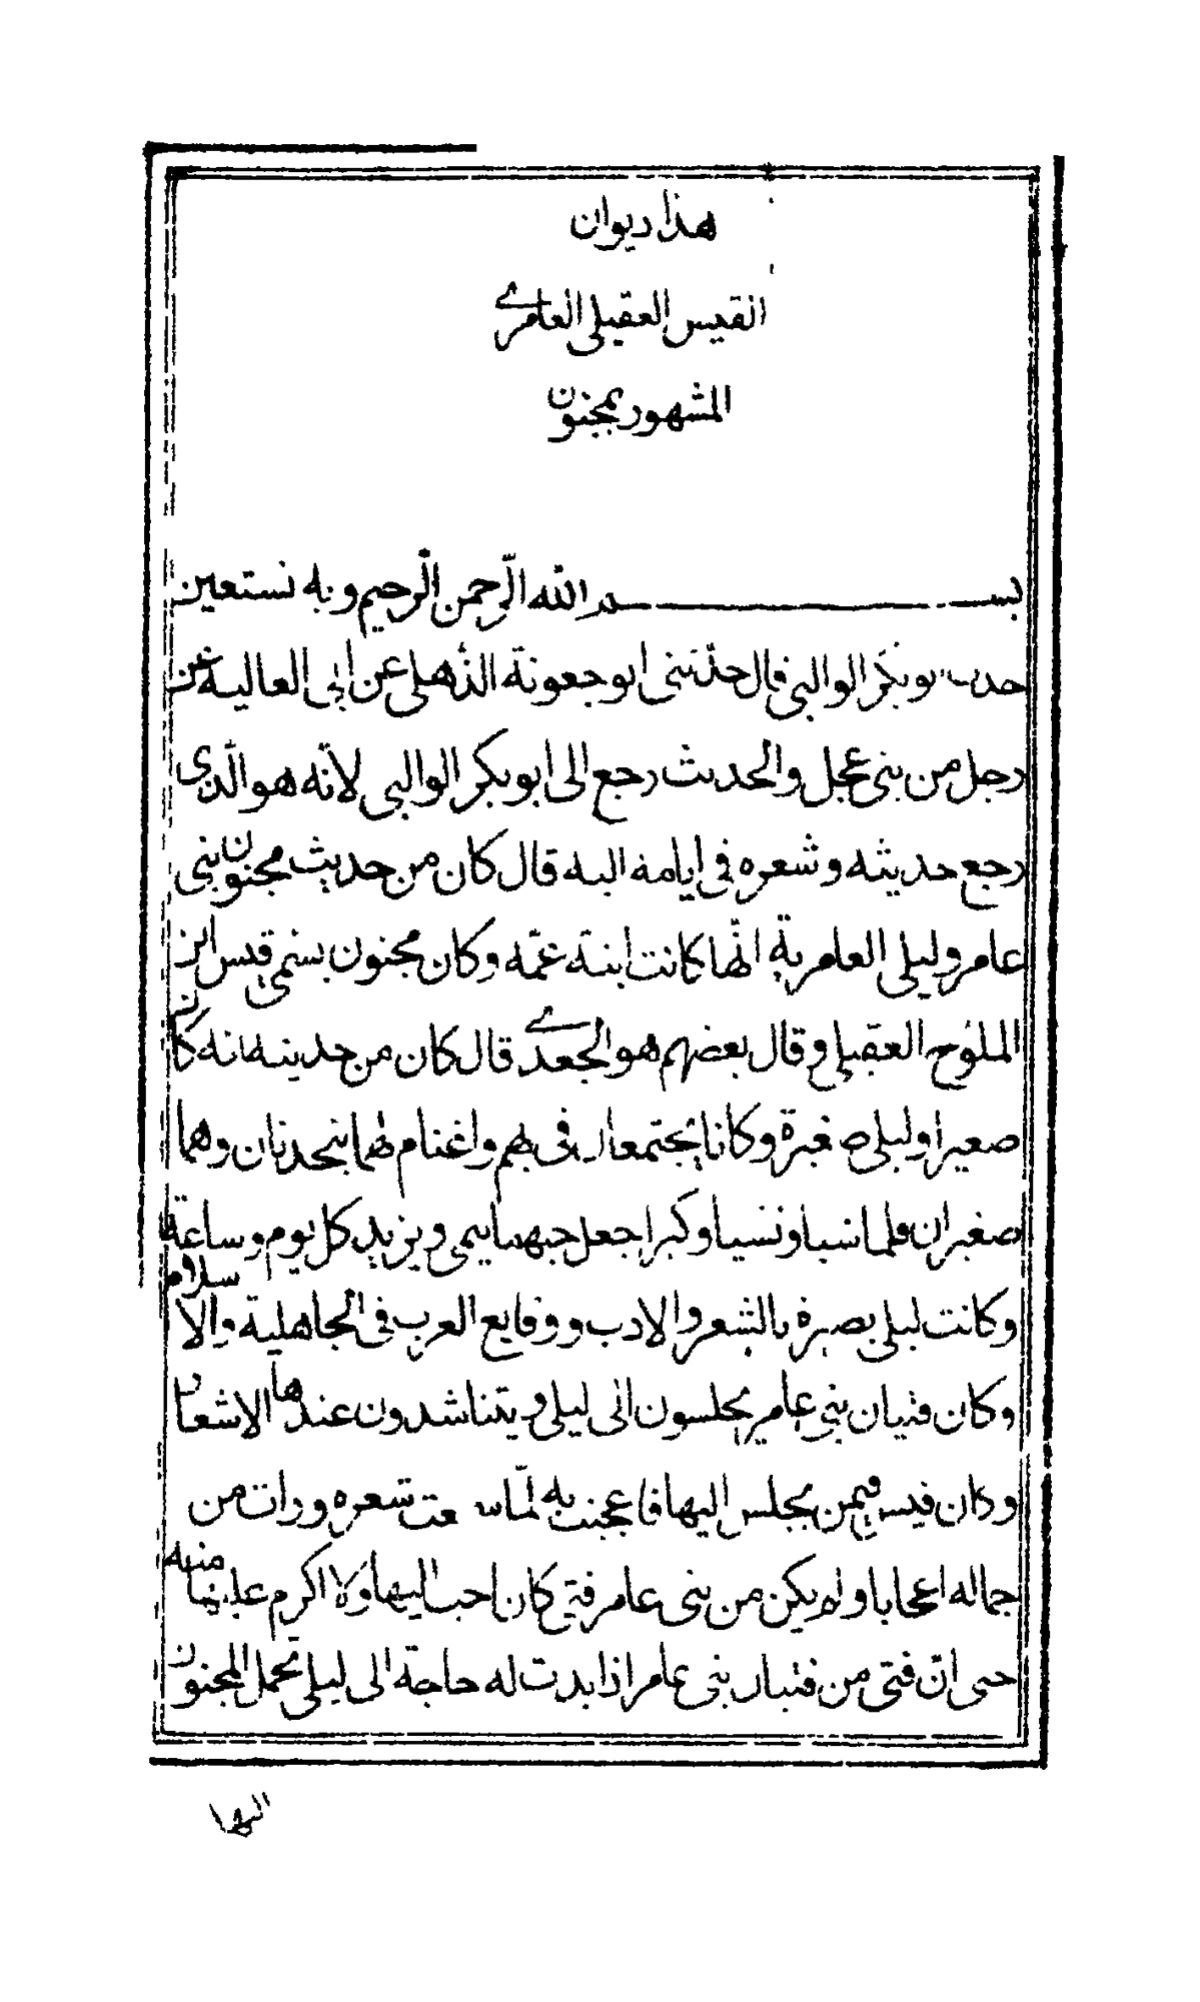 هذا ديوان
القيس العقيلى العامرى
المشهور بمجنون
بسم الله الرّحمن الرحيم وبه نستعين
حدث ابو بكر الوالبى قال حدّثنى ابو جعونة الذّهلى عن ابى العالية عن
رجل من بنى عجل والحديث رجع الى ابو بكر الوالبى لانّه هو الّذى
رجع حديثه وشعره فى ايامه اليه قال كان من حديث مجنون بنى
عامر وليلى العامرية انّها كانت ابنة عمّه وكان مجنون يسمى قيس ابن
الملوّح العقيلى وقال بعضهم هو الجعدى قال كان من حديثه انه كان
صغيرا وليلى صغيرة وكانا يجتمعان فى بهم واغنام لهما يتحدثان وهما
صغيران فلما شبا ونشيا وكبرا جعل حبهما ينمى ويزيد كل يوم وساعة
وكانت ليلى بصيرة بالشعر والادب ووقايع العرب فى الجاهلية والاسلام
وكان فتيان بنى عامر يجلسون الى ليلى ويتناشدون عندها الاشعار
وكان قيس فيمن يجلس اليها فاعجبت به لمّا سمعت شعره ورات من
جماله اعجابا ولم يكن من بنى عامر فتى كان احب اليها ولا اكرم عليها منه
حتى انّ فتى من فتيان بنى عامر اذا بدت له حاجة الى ليلى تحمل المجنون
اليها